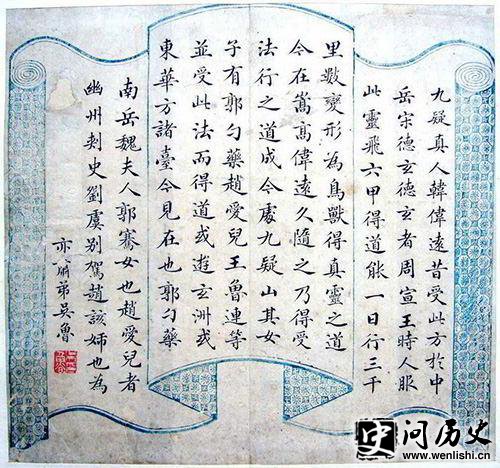 九疑真人韓偉遠昔受此方於中
岳宋德玄德玄者周宣王時人服
此靈飛六甲得道能一日行三千
里數變形為鳥獸得真靈之道
今在嵩高偉遠久隨之乃得受
法行之道成今處九疑山其女
子有郭勺藥趙愛兒王魯連等
並受此法而得道或遊玄洲或
東華方諸臺今見在也郭勺藥
南岳魏夫人郭騫女也趙愛兒者
幽州刺史劉虞别駕趙該姊也為
弟吳魯
问历史
www.wenlishi.cn